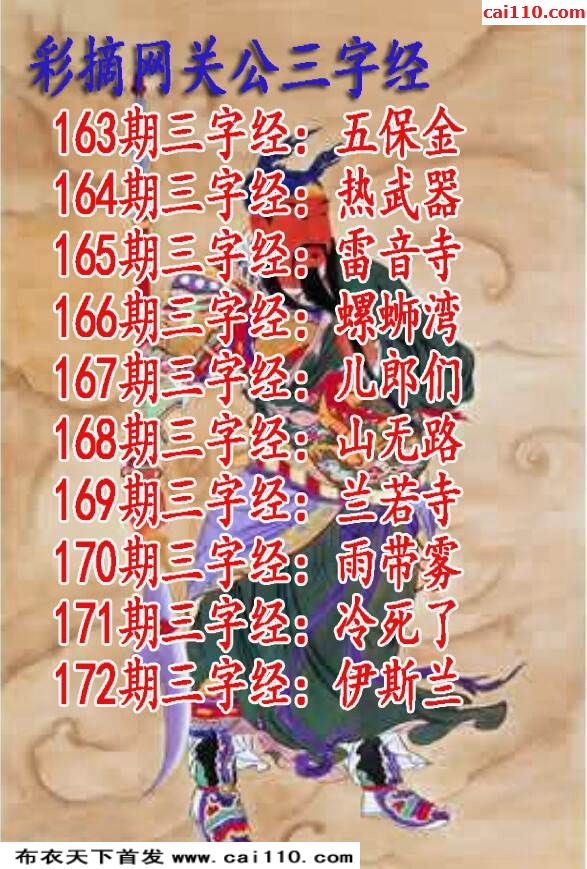 cai110.com
彩摘网关公三字经
163期三字经：五保金
164期三字经：热武器
165期三字经：雷音寺
166期三字经：螺蛳湾
167期三字经：儿郎们
168期三字经：山无路
169期三字经：兰若寺
170期三字经：雨带雾
171期三字经：冷死了
172期三字经：伊斯兰
布衣天下首发 www.cai110.com